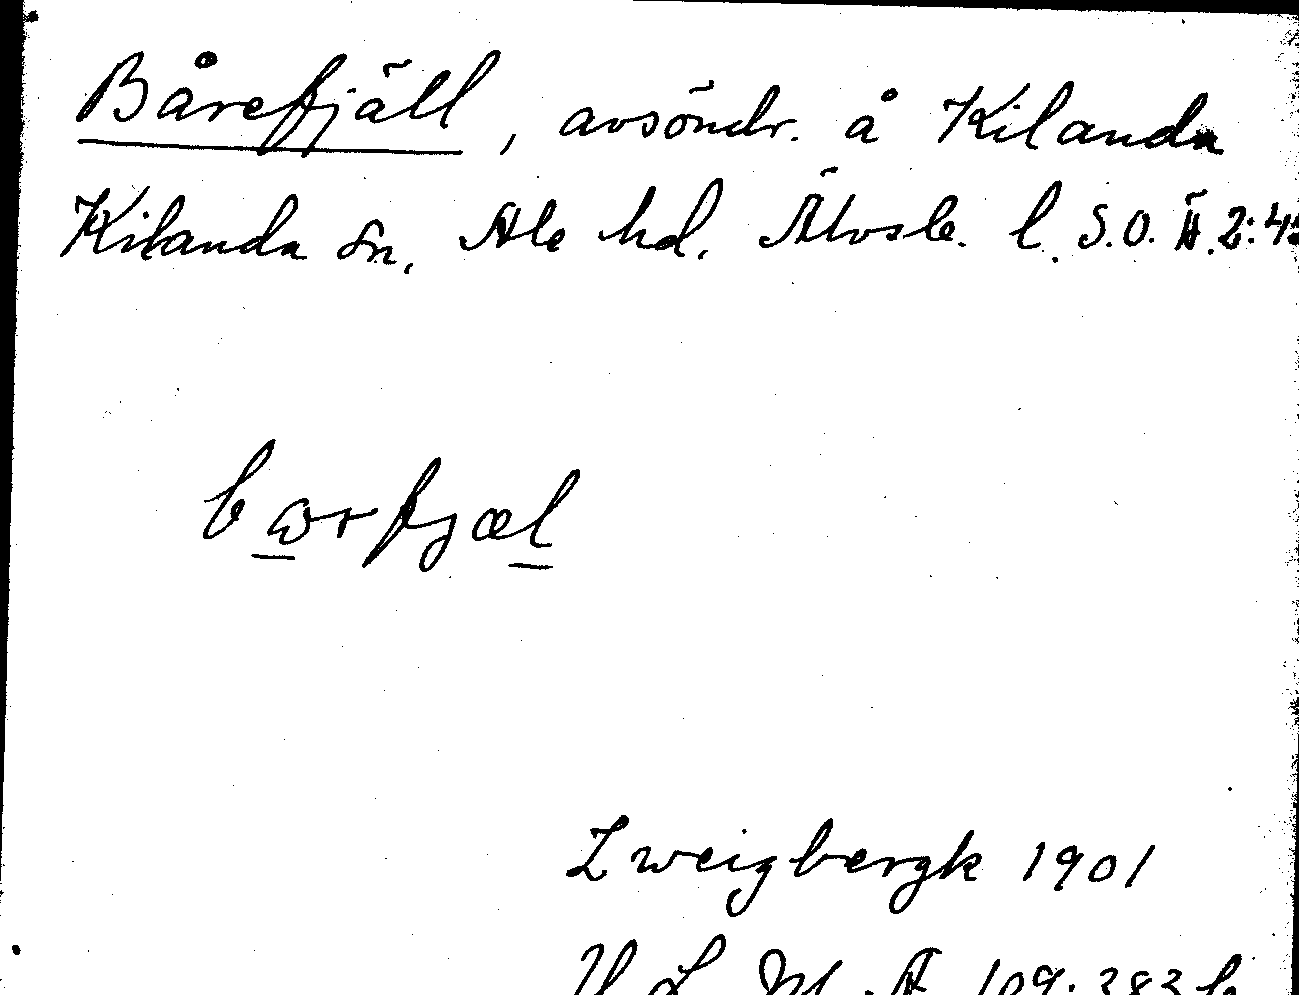 Bårefjäll, avsöndr. å Kilanda
Kilanda sn, Ale hd. Älvsb. l. S.O. Ä. 2:45
bωrfjæl
Zweigbergk 1901
V L M A 109:383 b